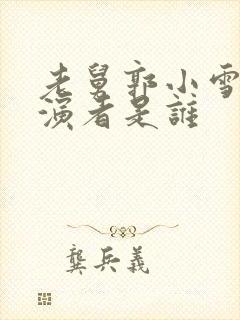 老舅郭小雪
演者是誰
龔兵義